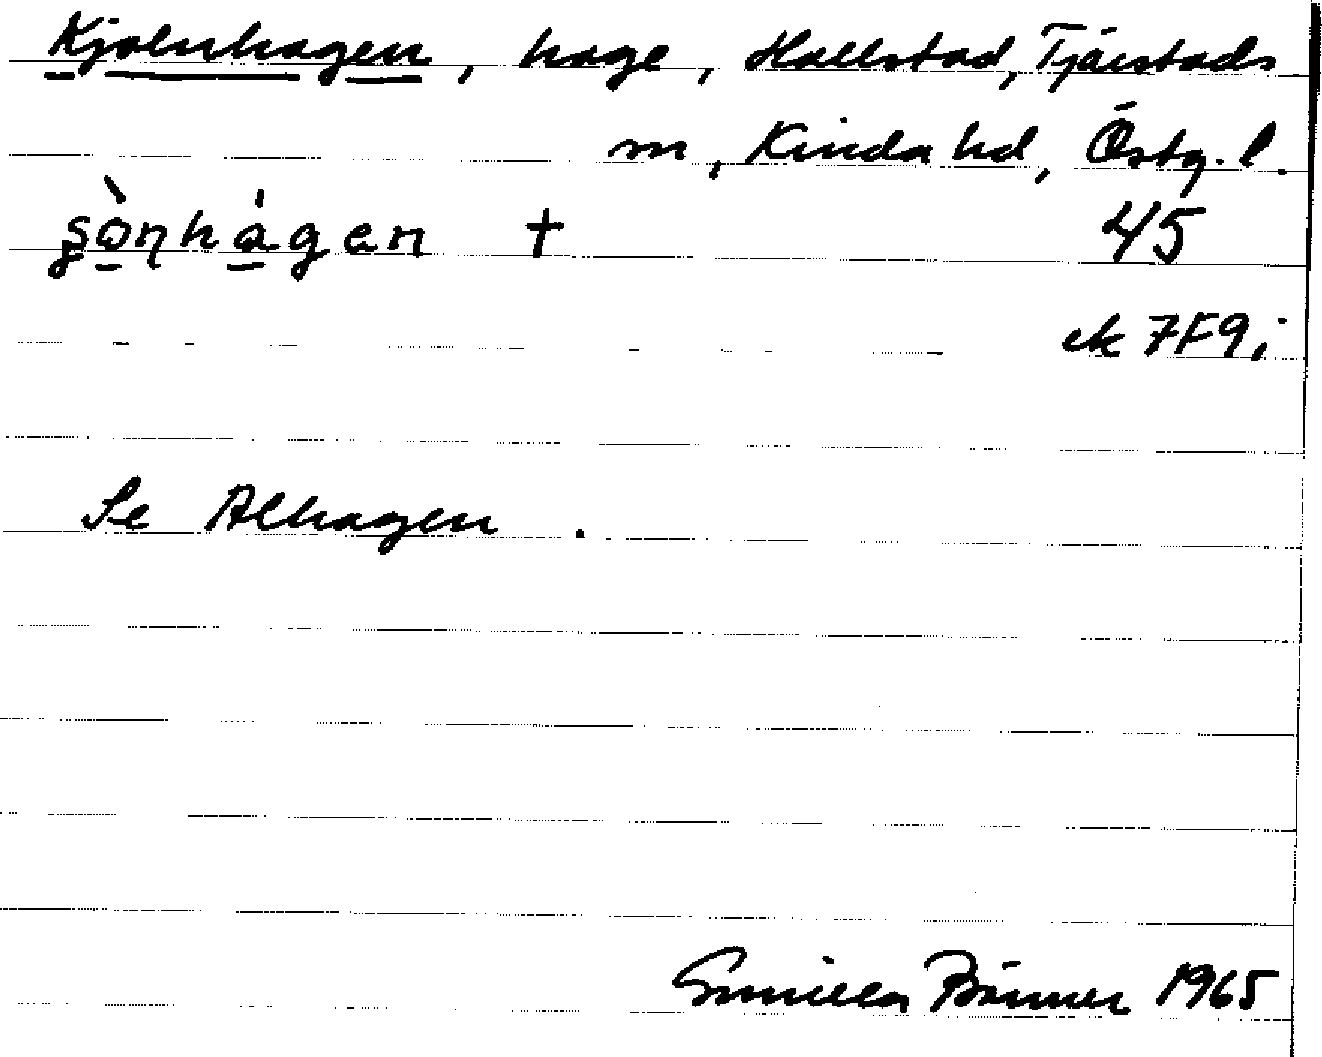 Kjolnhagen, hage, Hallstad, Tjärstads
sn, Kinda hd, Östg. l.
ʂònhàgen † 45
ek 7F9i
Se Alhagen.
Gunilla 1965